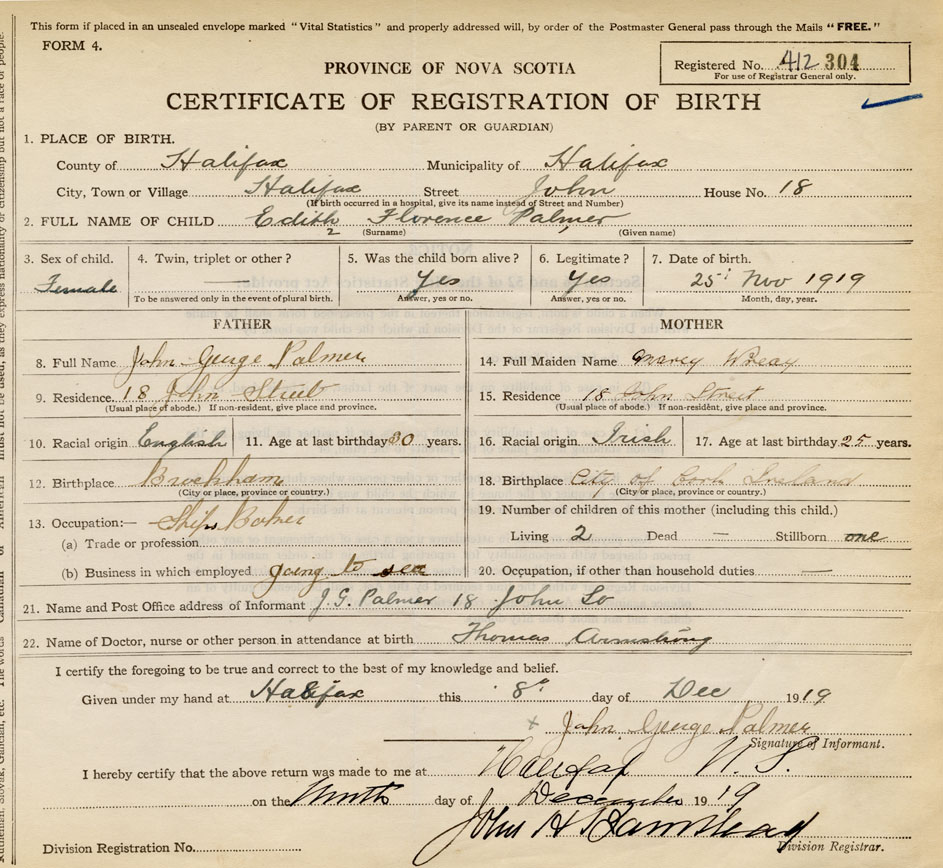 This form if placed in an unsealed envelope marked "Vital Statistics" and properly addressed will, by order of the Postmaster General pass through the Mails "FREE."
FORM 4.
Registered No. 412 304
For use of Registrar General only.
PROVINCE OF NOVA SCOTIA
CERTIFICATE OF REGISTRATION OF BIRTH
(BY PARENT OR GUARDIAN)
1. PLACE OF BIRTH.
County of Halifax Municipality of Halifax
City, Town or Village Halifax Street John House No. 18
(If birth occurred in a hospital, give its name instead of Street and Number)
2. FULL NAME OF CHILD Edith Florence Palmer
2 (Surname) (Given name)
3. Sex of child. 4. Twin, triplet or other? 5. Was the child born alive? 6. Legitimate? 7. Date of birth.
Female — Yes Yes 25 Nov 1919
To be answered only in the event of plural birth. Answer, yes or no. Answer, yes or no. Month, day, year.
FATHER
8. Full Name John George Palmer
9. Residence. 18 John Street
(Usual place of abode.) If non-resident, give place and province.
10. Racial origin English 11. Age at last birthday 30 years.
12. Birthplace
(City or place, province or country.)
13. Occupation:— Ships
(a) Trade or profession
(b) Business in which employed going to sea
MOTHER
14. Full Maiden Name
15. Residence 18 John Street
(Usual place of abode.) If non-resident, give place and province.
16. Racial origin Irish 17. Age at last birthday 25 years.
18. Birthplace City of Cork Ireland
(City or place, province or country.)
19. Number of children of this mother (including this child.)
Living 2 Dead — Stillborn one
20. Occupation, if other than household duties —
21. Name and Post Office address of Informant J.G. Palmer 18 John
22. Name of Doctor, nurse or other person in attendance at birth Thomas Armstrong
I certify the foregoing to be true and correct to the best of my knowledge and belief.
Given under my hand at Halifax this 8th day of Dec 1919
x John George Palmer
Signature of Informant.
I hereby certify that the above return was made to me at Halifax N. S.
on the Ninth day of December 1919
John H
Division Registration No. Division Registrar.